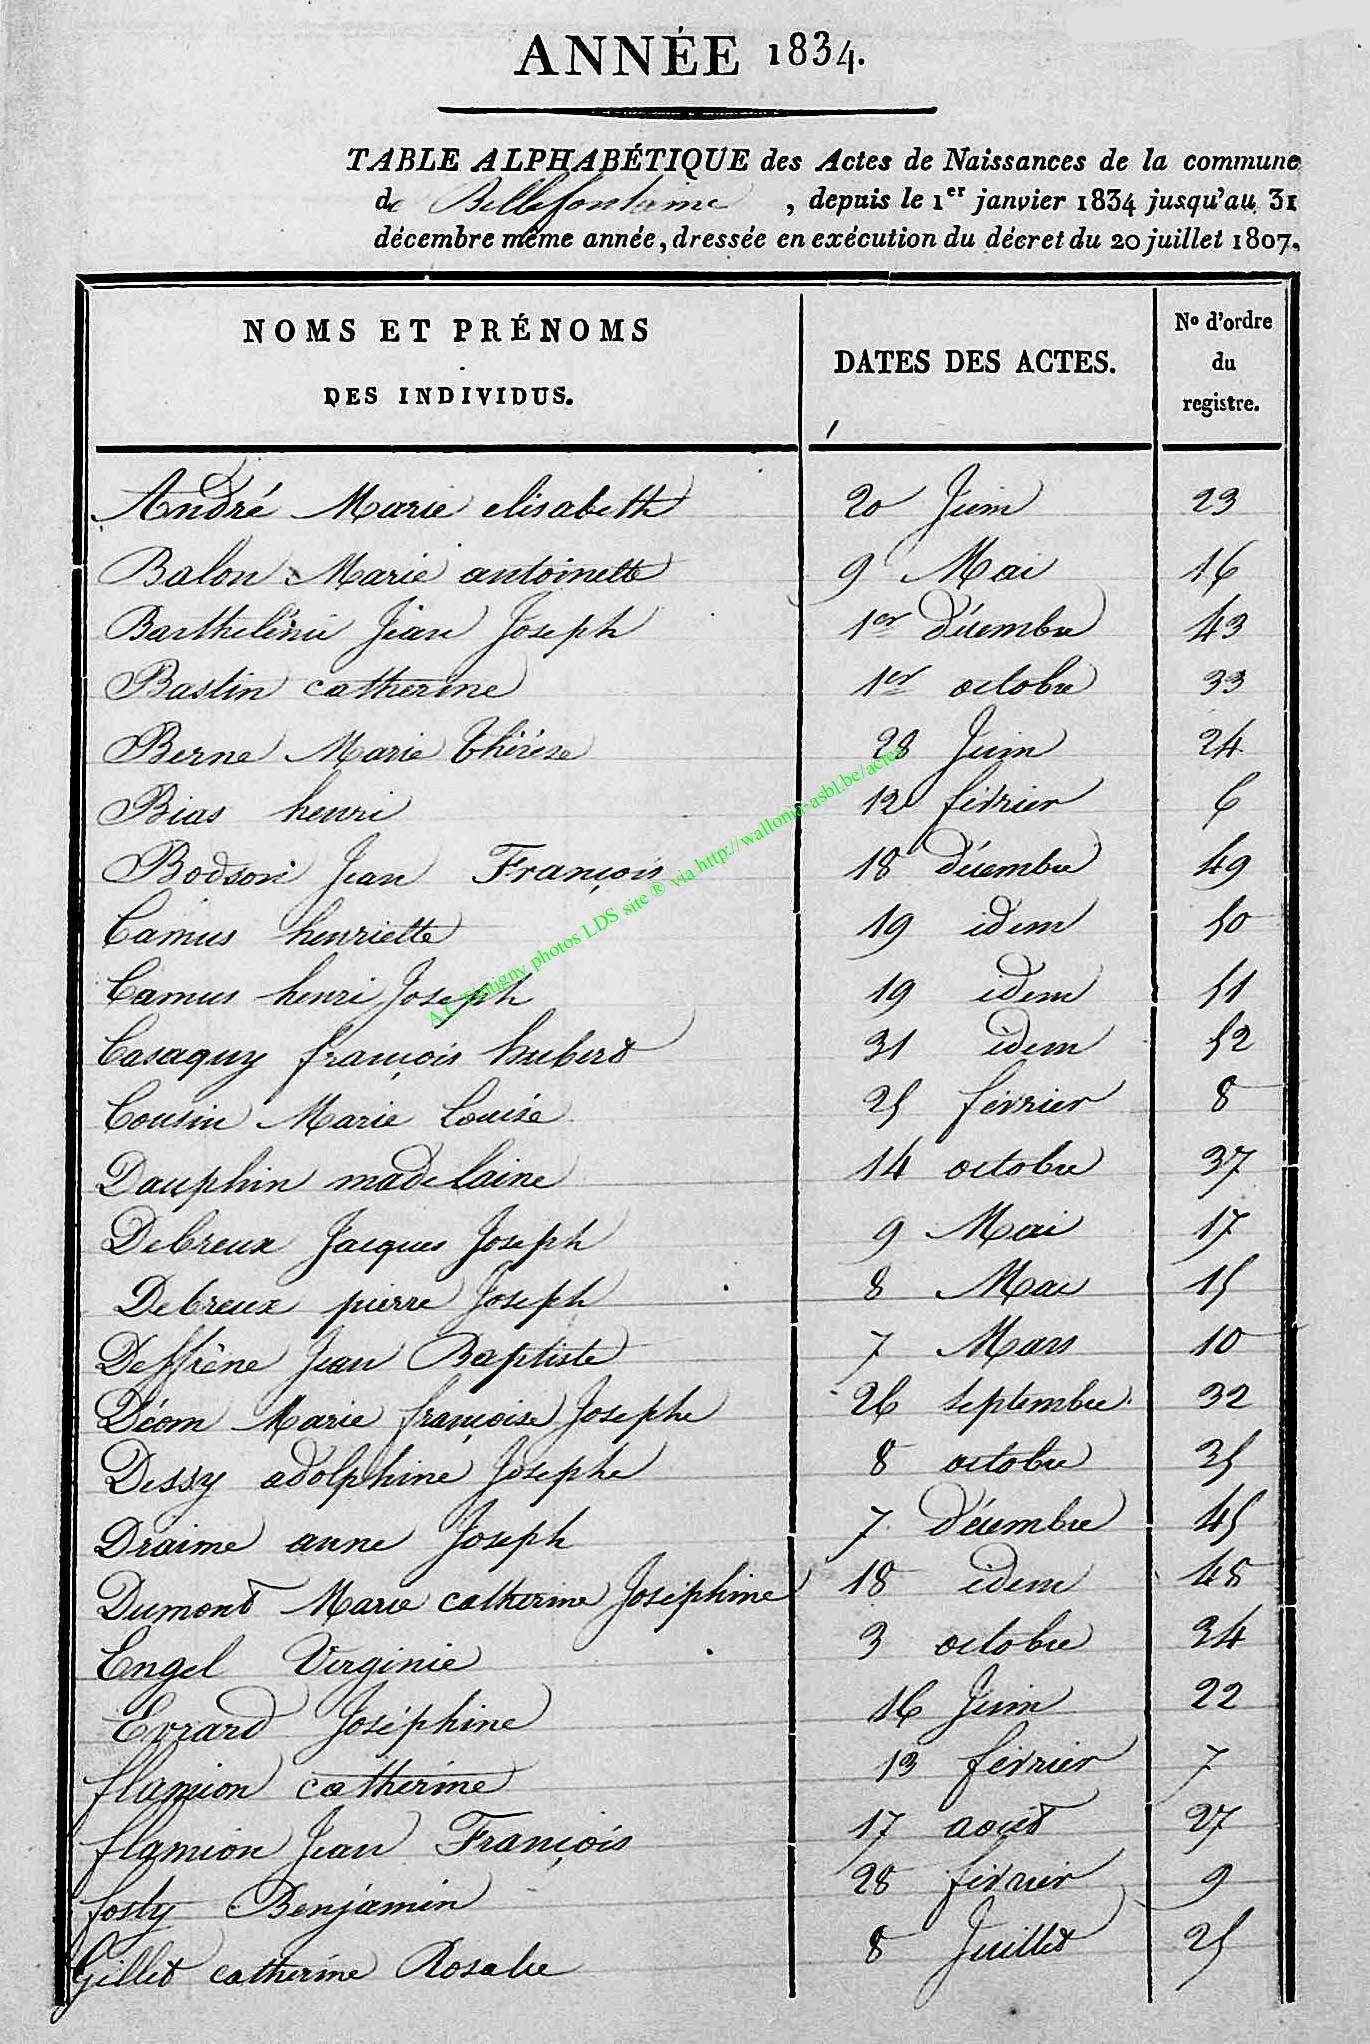 ANNÉE 1834.
TABLE ALPHABÉTIQUE des Actes de Naissances de la commune
de Bellefontaine, depuis le 1er janvier 1834 jusqu'au 31
décembre même année, dressée en exécution du décret du 20 juillet 1807.
NOMS ET PRÉNOMS DES INDIVIDUS. DATES DES ACTES. No d'ordre du registre.
André Marie elisabeth 20 Juin 23
Balon Marie antoinette 9 Mai 16
Barthelémi Jean Joseph 1er décembre 43
Bastin catherine 1er octobre 33
Berne Marie thérèse 23 Juin 24
Bias henri 12 février 6
Bodson Jean François 18 décembre 49
Camus henriette 19 idem 50
Camus henri Joseph 19 idem 51
Casaquy françois hubert 31 idem 52
Cousin Marie Louise 25 février 8
Dauphin madelaine 14 octobre 37
Debreux Jacques Joseph 9 Mai 17
Debreux pierre Joseph 8 Mai 15
Deffrène Jean Baptiste 7 Mars 10
Déom Marie françoise Josephe 26 septembre 32
Dessy adolphine Josephe 8 octobre 35
Draime anne Joseph 7 décembre 45
Dumont Marie catherine Joséphine 18 idem 48
Engel Virginie 3 octobre 34
Evrard Joséphine 16 Juin 22
flamion catherine 13 février 7
flamion Jean François 17 août 27
fosty Benjamin 28 février 9
Gillet catherine Rosalie 8 Juillet 25
A.C. Tintigny photos LDS site ® via http://wallonia-asbl.be/actes